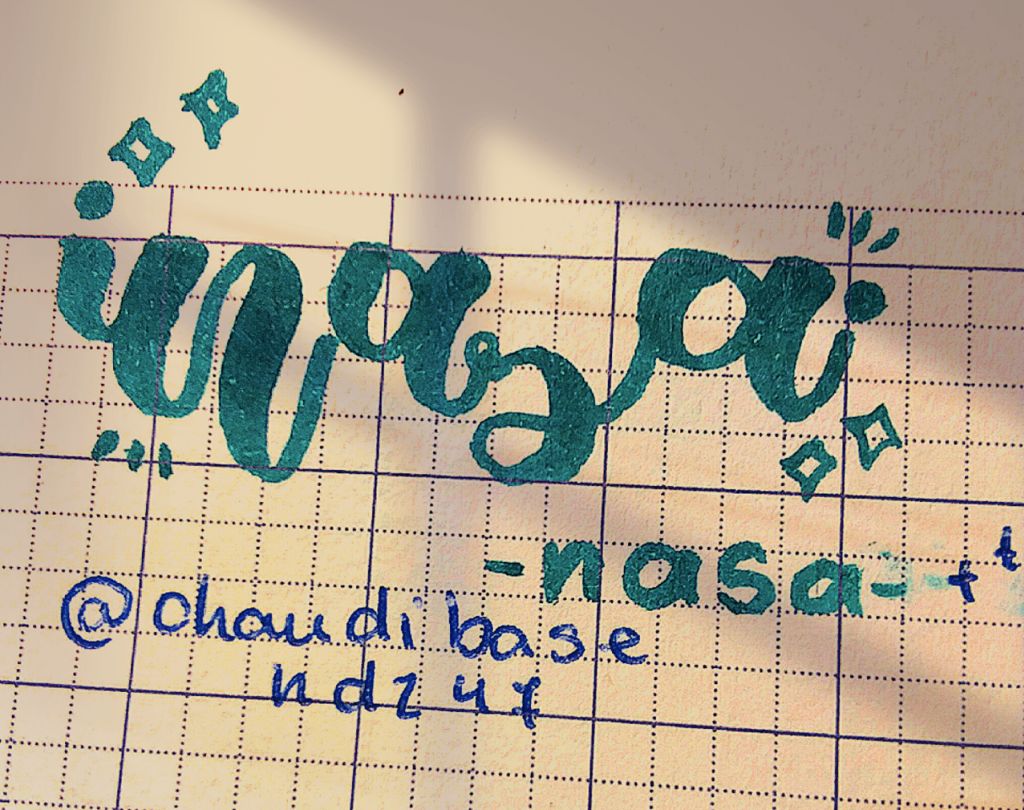 nasa
-nasa-
@chaudibase
ndz47